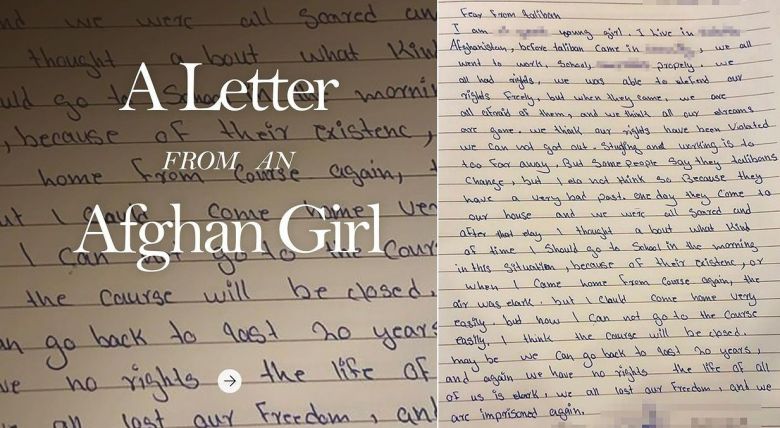 nd we were all soared an
thought a bout what Kin
A Letter
uld go to School in the mornin
, because of their existenc,
FROM AN
home from Course again, t
Afghan Girl
ut I could come home ver
I can not go to the Cour
the course will be closed.
an go back to last 20 years
ve no rights the life of
all lost our Freedom, an
Fear From taliban
I am young girl. I live in
Afghanistan, before taliban came in , we all
went to work, School, propely. we
all had rights, we was able to defend our
rights Freely, but when they came, we are
all afraid of them, and we think all our dreams
are gone. we think our rights have been Violated
we can not got out. Studing and working is to
too far away. But Some people Say they talibans
Change, but I do not think so Because they
have a very bad past. one day they come to
our house and we were all Soared and
after that day I thought a bout what Kind
of time Should go to School in the morning
in this situation, because of their existenc, or
when I came home From Course again, the
air was dark. but I Could come home very
easily. but now I can not go to the Course
easily. I think the course will be closed.
may be we can go back to last 20 years,
and again we have no rights the life of all
of us is dark, we all lost our Freedom, and we
are imprisoned again.